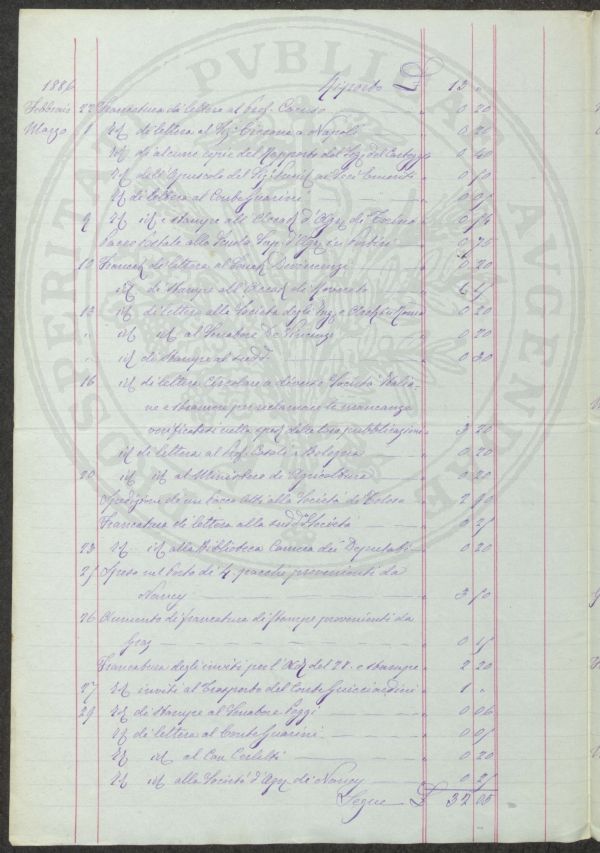 1886 Riporto £ 12 "
Febbraio 22 Francatura di lettera al Prof. Caruso " 0 20
Marzo 1 Id di lettera al Sigr Ciccone a Napoli " 0 20
Id di alcune copie del Rapporto del Sig. del " 0 40
Id dell'Opuscolo del ai Soci " 0 50
Id di lettera al Conte Guarini " 0 05
9 Id id e stampe all'Accad d'Agra di Torino "
Pacco postale alla Scuola Sup. d'Agra in Portici " 0 75
10 Francat di lettera al Devincenzi " 0 20
id di stampe all'Accad di Rovereto " 0 15
13 id di lettere alla Società degli Ing. e in Roma " 0 20
" id id al Senatore De Vincenzi " 0 20
" id di stampe al sudd. " 0 30
16 id di lettere Circolare a diverse Società Italia-
ne e straniere per reclamare le mancanze
verificatesi nella sped. delle loro pubblicazioni " 3 20
id di lettera al Prof. Casali a Bologna " 0 20
20 id id al Ministero di Agricoltura " 0 20
Spedizione di un pacco Atti alla Società di Tolosa " 2 90
Francatura di lettera alla sudda Società " 0 25
23 Id id alla Biblioteca Camera dei Deputati " 0 20
25 Speso nel Porto di 4 pacchi provenienti da
Nancy " 3 50
26 Aumento di francatura di stampe provenienti da
Graz " 0 15
Francatura degli inviti per l'Ad del 28. e stampe " 2 20
27 Id inviti al Trasporto del Conte Guicciardini " 1 "
29 Id di stampe al Senatore Poggi " 0 06
Id di lettera al Conte Guarini " 0 05
Id id al Cerletti " 0 20
Id id alla Società d'Agra di Nancy " 0 25
Segue £ 32 05
PROSPERITATI PVBLICAE AVGENDAE